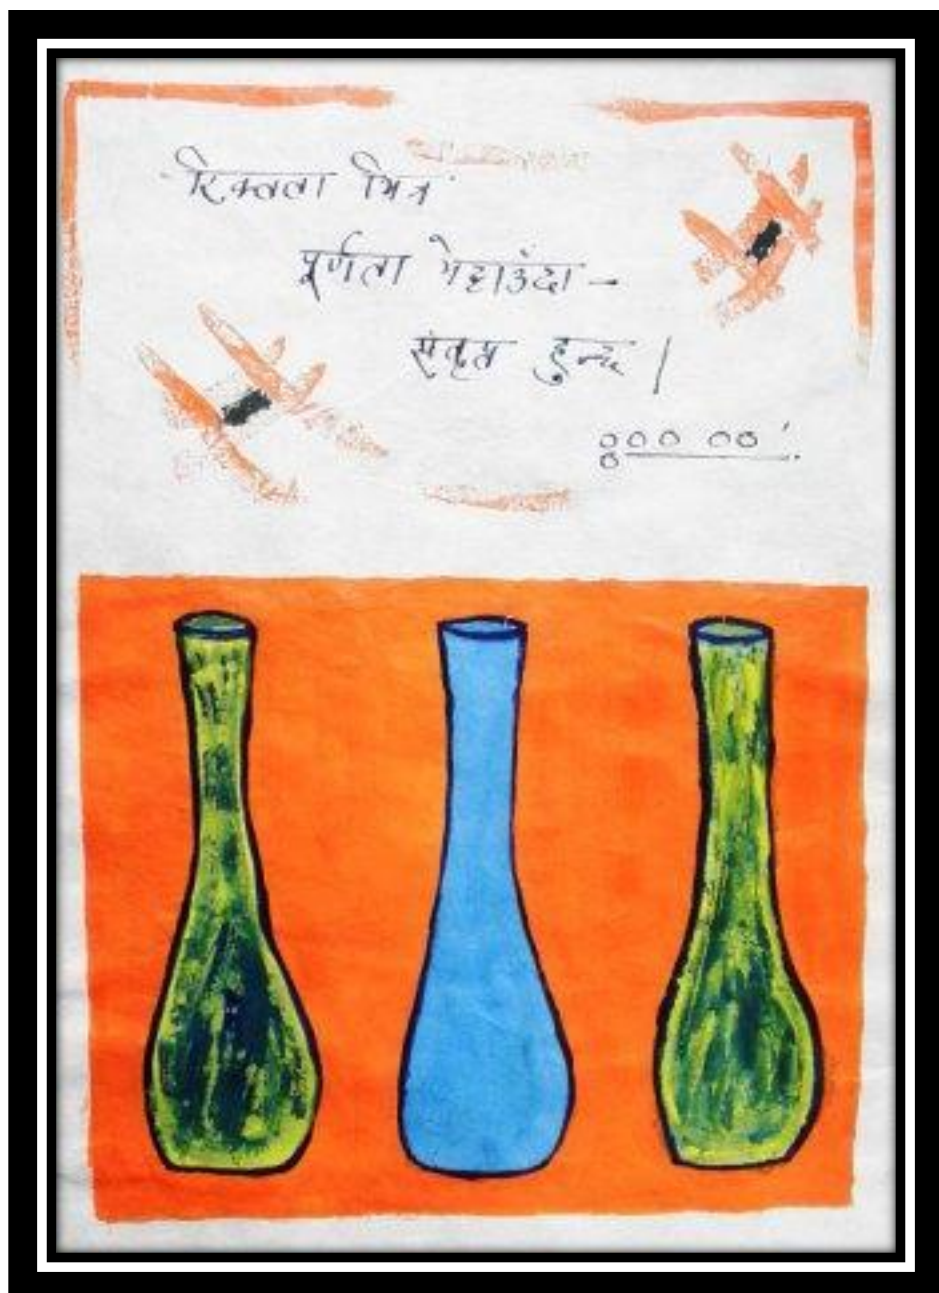 रिक्तता भित्र
पूर्णता भेट्टाउँदा –
संतृप्त हुन्छ |